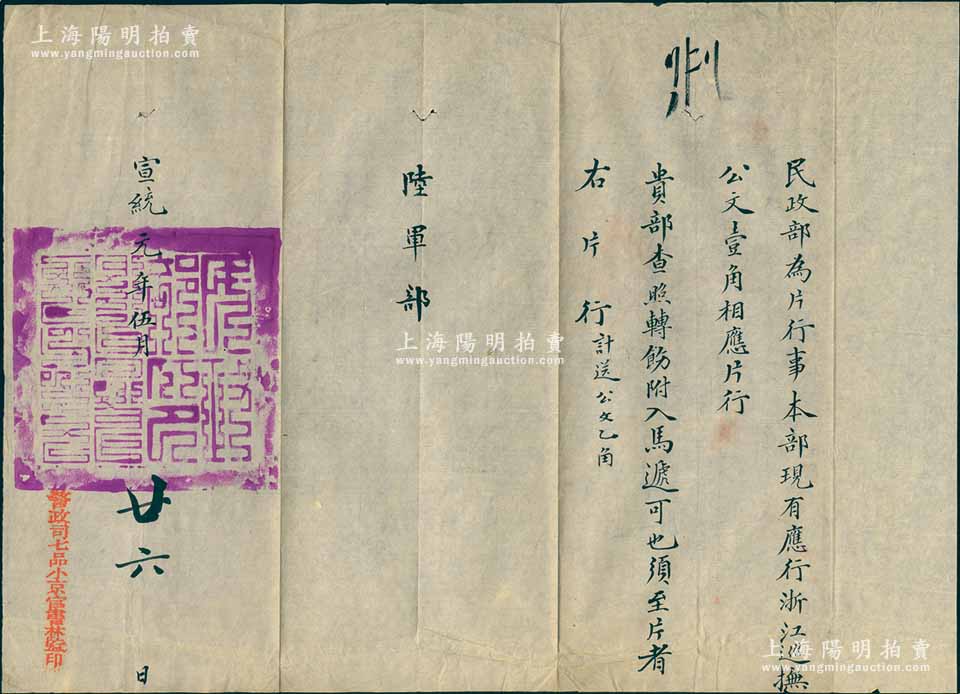 民政部為片行事本部現有應行浙江巡撫
公文壹角相應片行
貴部查照轉飭附入馬遞可也須至片者
右片行計送公文乙角
陸軍部
宣統元年伍月廿六日
警政司七品小京官書林監印
上海陽明拍賣
www.yangmingauction.com
上海陽明拍賣
www.yangmingauction.com
上海陽明拍賣
www.yangmingauction.com